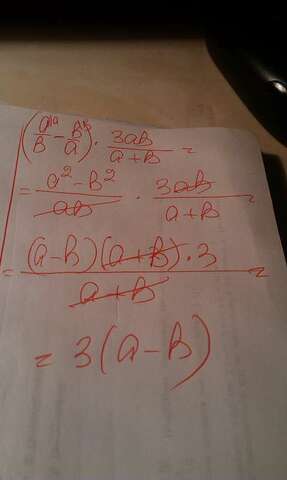 (a^a/b - b^b/a) · 3ab/(a+b) =
= (a² - b²)/(ab) · 3ab/(a+b) =
= (a-b)(a+b)·3/(a+b) =
= 3(a-b)